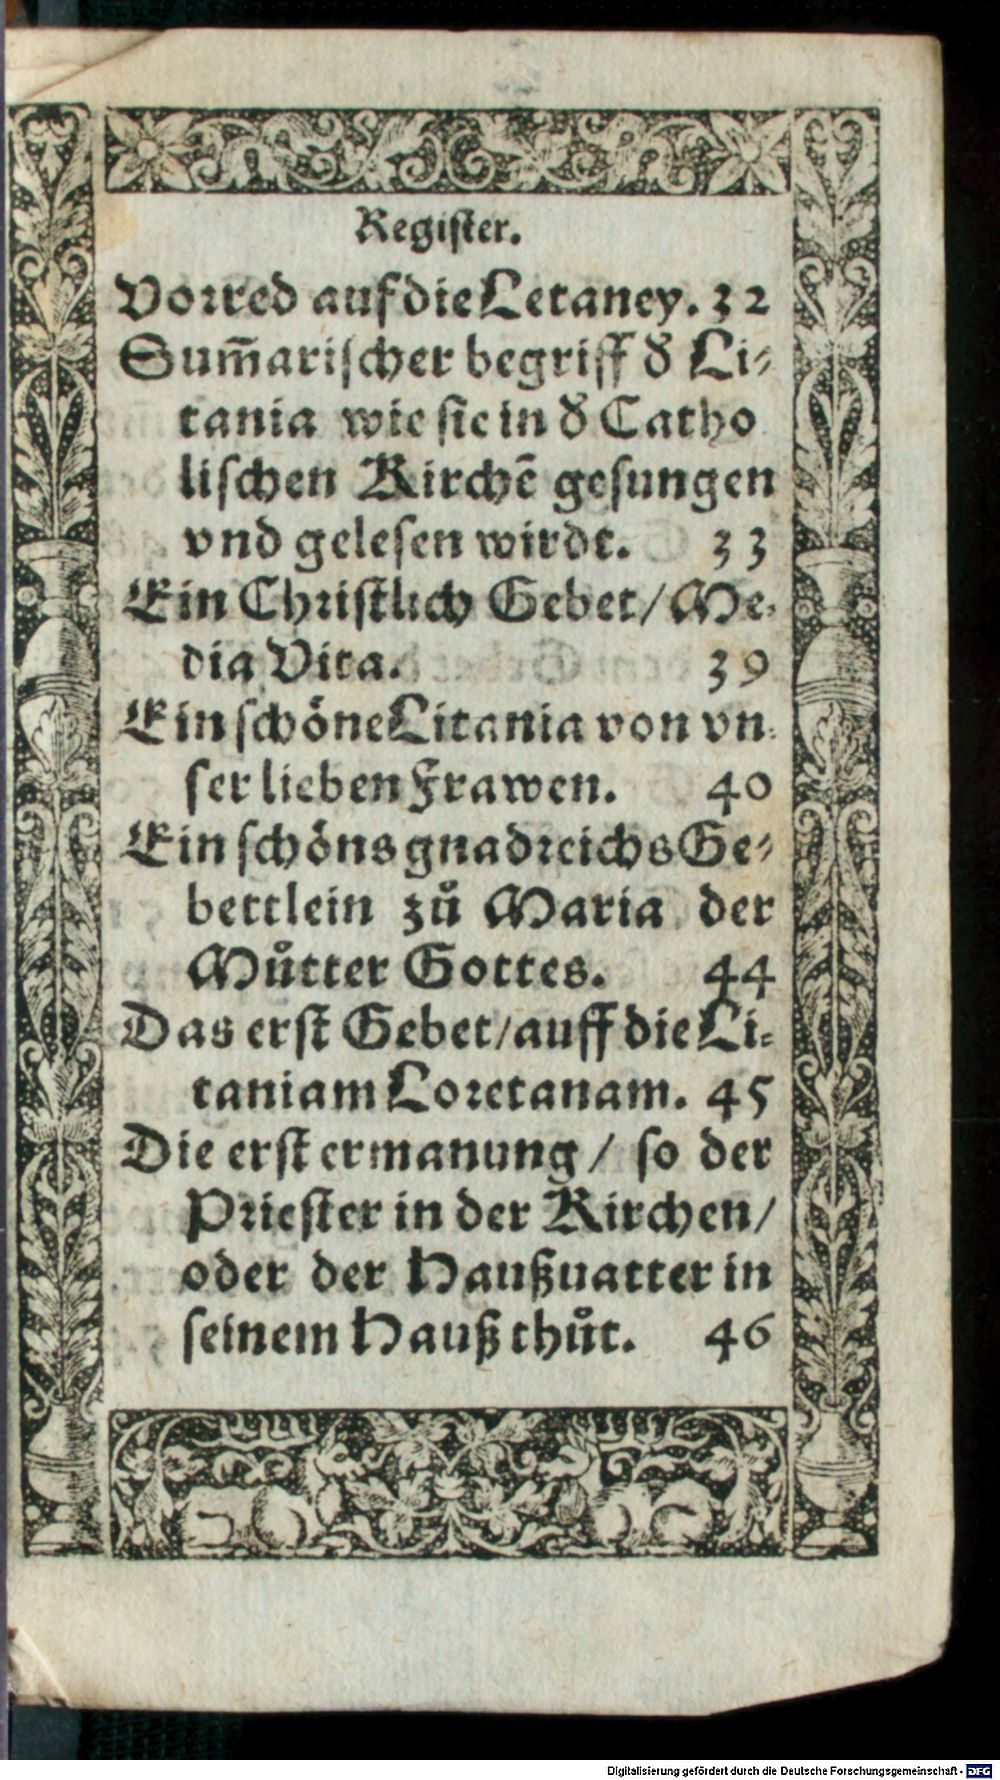 Register.
Vorred auf die Letaney. 32
Sum̃arischer begriff d̕ Li⸗
tania wie sie in d̕ Catho
lischen Kirchẽ gesungen
vnd gelesen wirdt. 33
Ein Christlich Gebet/ Me⸗
dia Vita. 39
Ein schöne Litania von vn⸗
ser lieben Frawen. 40
Ein schöns gnadreichs Ge⸗
bettlein zů Maria der
Můtter Gottes. 44
Das erst Gebet/ auff die Li⸗
taniam Loretanam. 45
Die erst ermanung / so der
Priester in der Kirchen/
oder der Haußuatter in
seinem Hauß thůt. 46
Digitalisierung gefördert durch die Deutsche Forschungsgemeinschaft - DFG